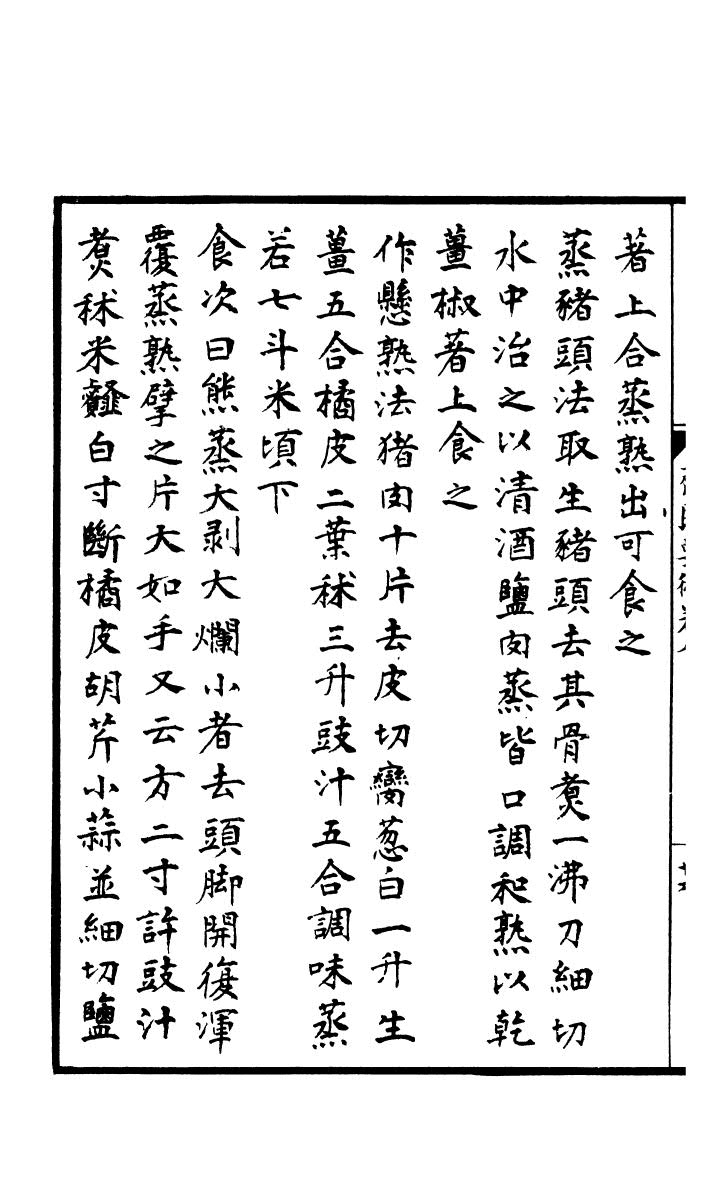 著上合蒸熟出可食之
蒸豬頭法取生豬頭去其骨煑一沸刀細切
水中治之以清酒鹽肉蒸皆口調和熟以乾
薑椒著上食之
作懸熟法猪肉十片去皮切臠葱白一升生
薑五合橘皮二葉秫三升豉汁五合調味蒸
若七斗米頃下
食次曰熊蒸大剥大爛小者去頭脚開復渾
覆蒸熟擘之片大如手又云方二寸許豉汁
煑秫米䪥白寸斷橘皮胡芹小蒜並細切鹽